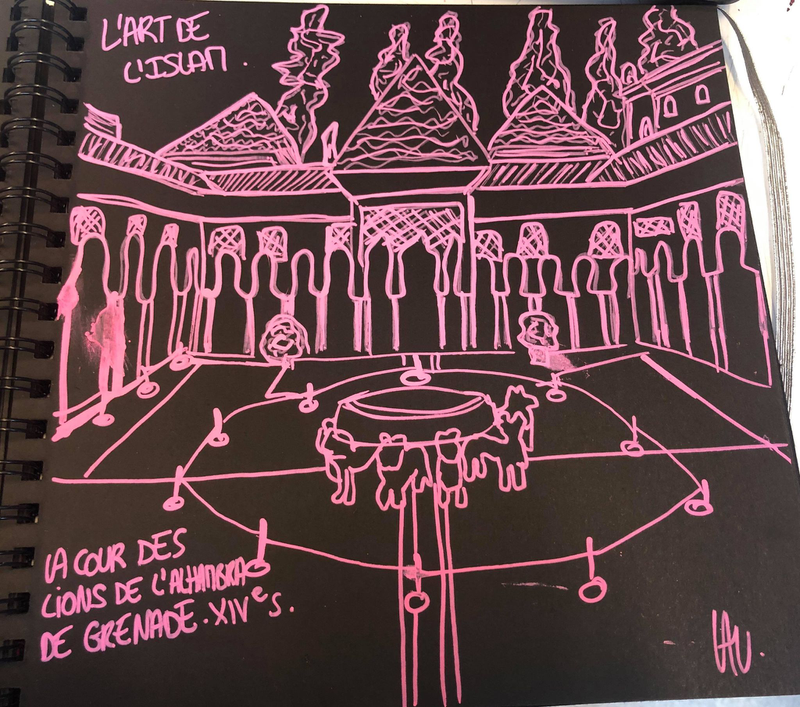 L'ART DE
L'ISLAM.
LA COUR DES
LIONS DE L'ALHAMBRA
DE GRENADE. XIVe S.